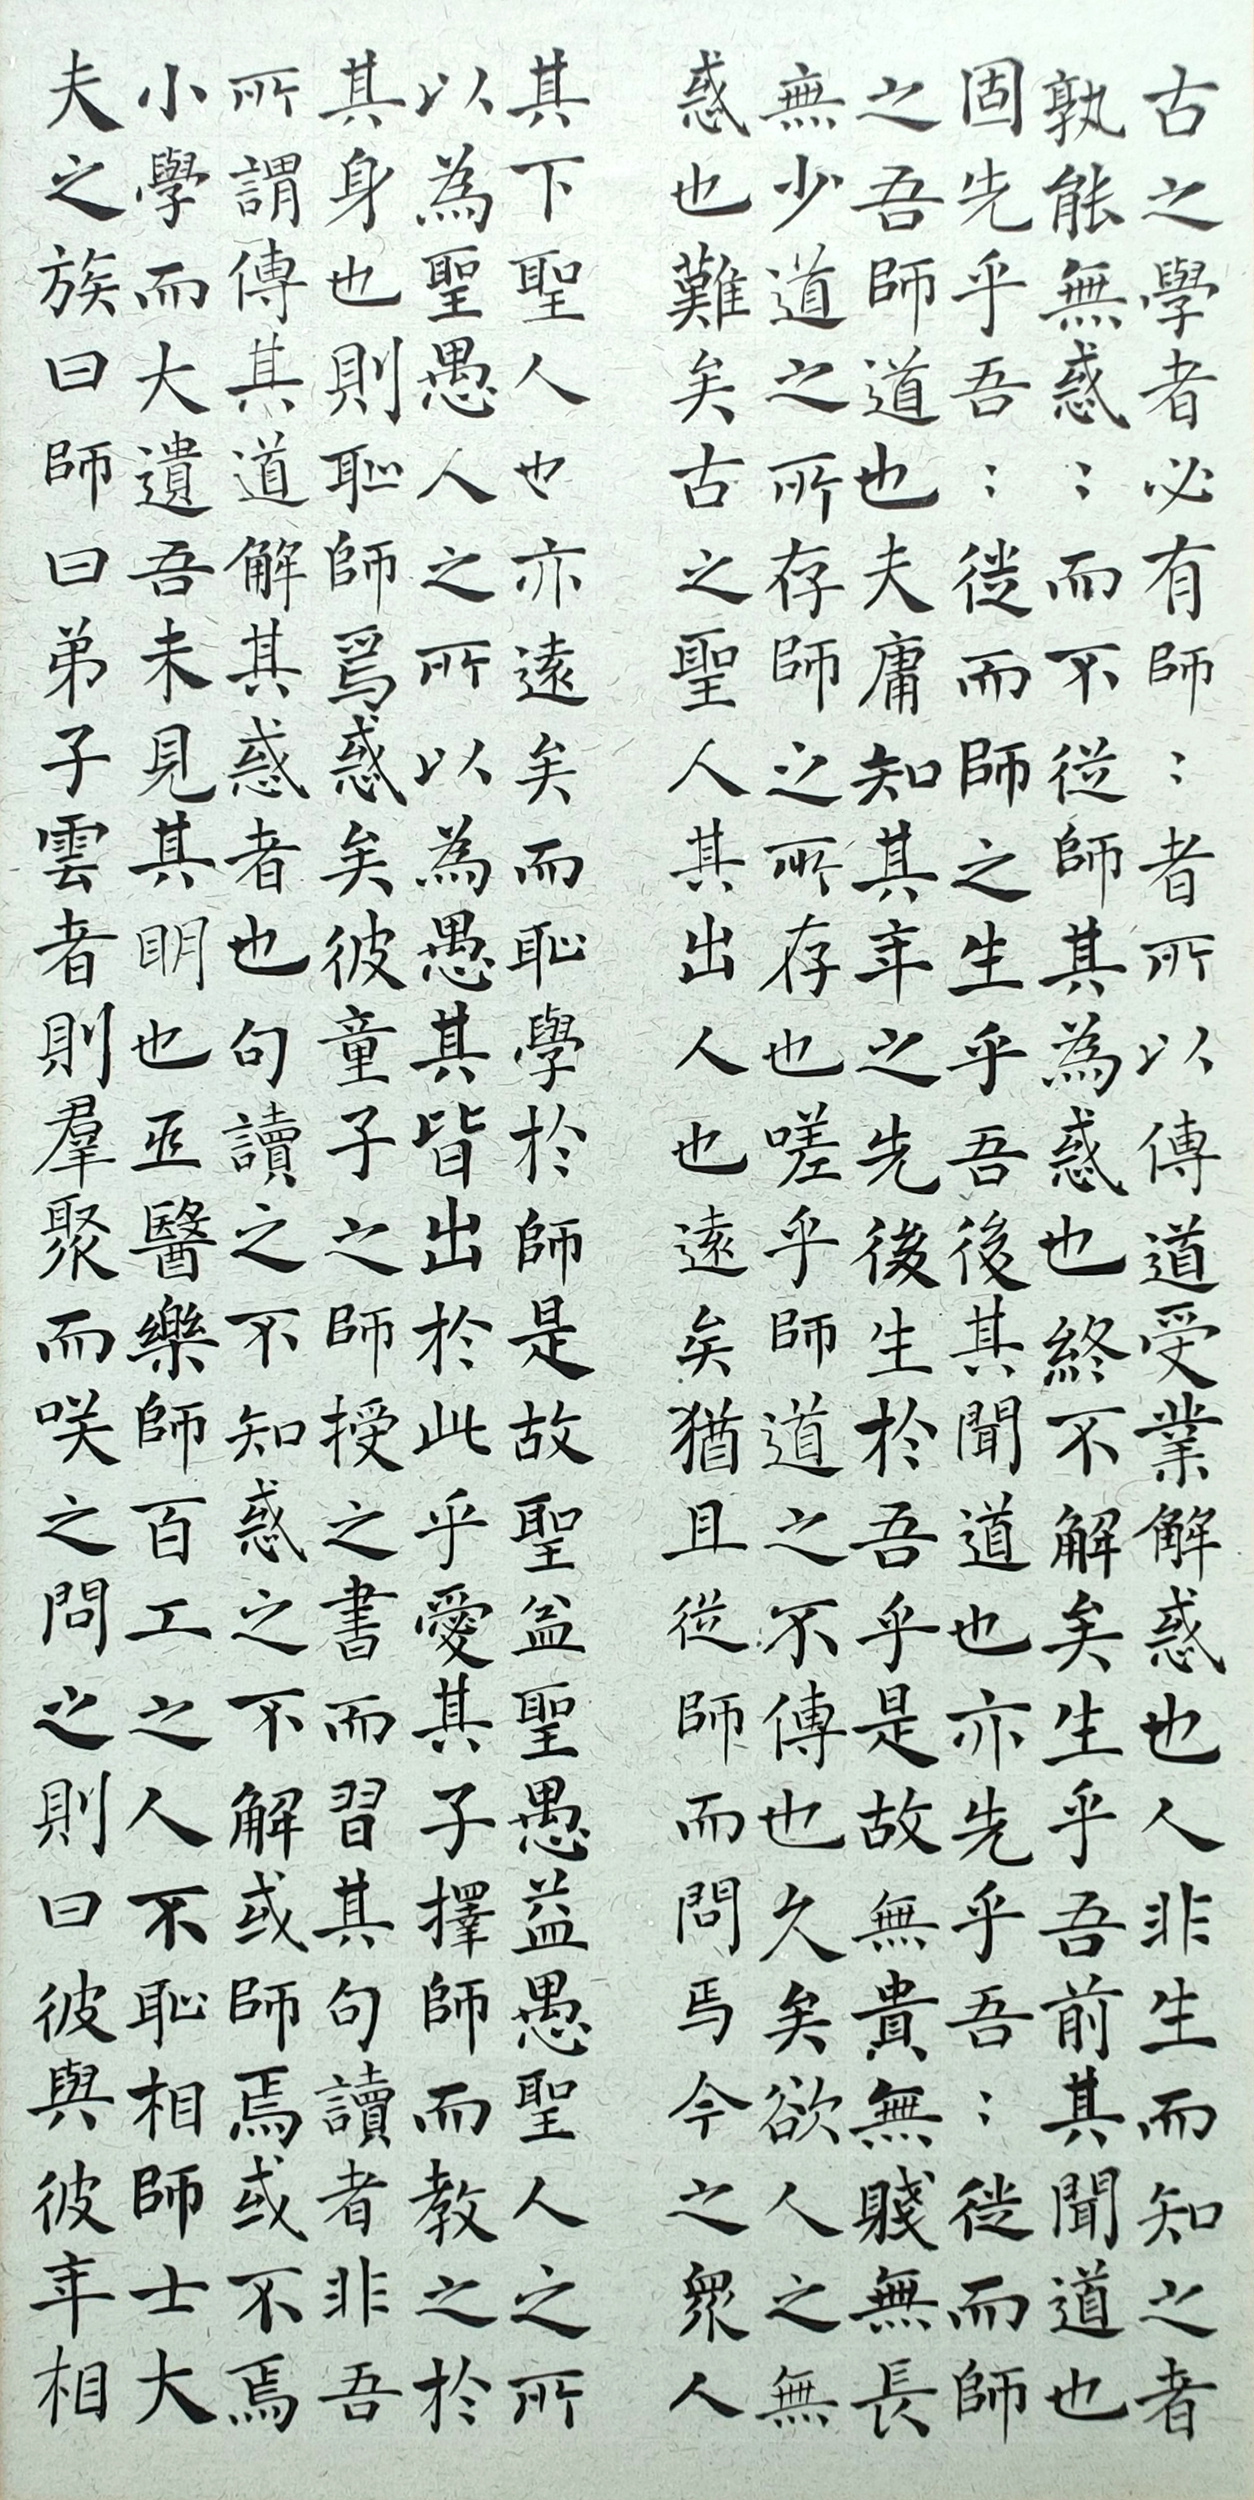 古之學者必有師：者所以傳道受業解惑也人非生而知之者
孰能無惑：而不從師其為惑也終不解矣生乎吾前其聞道也
固先乎吾：從而師之生乎吾後其聞道也亦先乎吾：從而師
之吾師道也夫庸知其年之先後生於吾乎是故無貴無賤無長
無少道之所存師之所存也嗟乎師道之不傳也久矣欲人之無
惑也難矣古之聖人其出人也遠矣猶且從師而問焉今之眾人
其下聖人也亦遠矣而恥學於師是故聖益聖愚益愚聖人之所
以為聖愚人之所以為愚其皆出於此乎愛其子擇師而教之於
其身也則恥師焉惑矣彼童子之師授之書而習其句讀者非吾
所謂傳其道解其惑者也句讀之不知惑之不解或師焉或不焉
小學而大遺吾未見其明也巫醫樂師百工之人不恥相師士大
夫之族曰師曰弟子雲者則羣聚而咲之問之則曰彼與彼年相